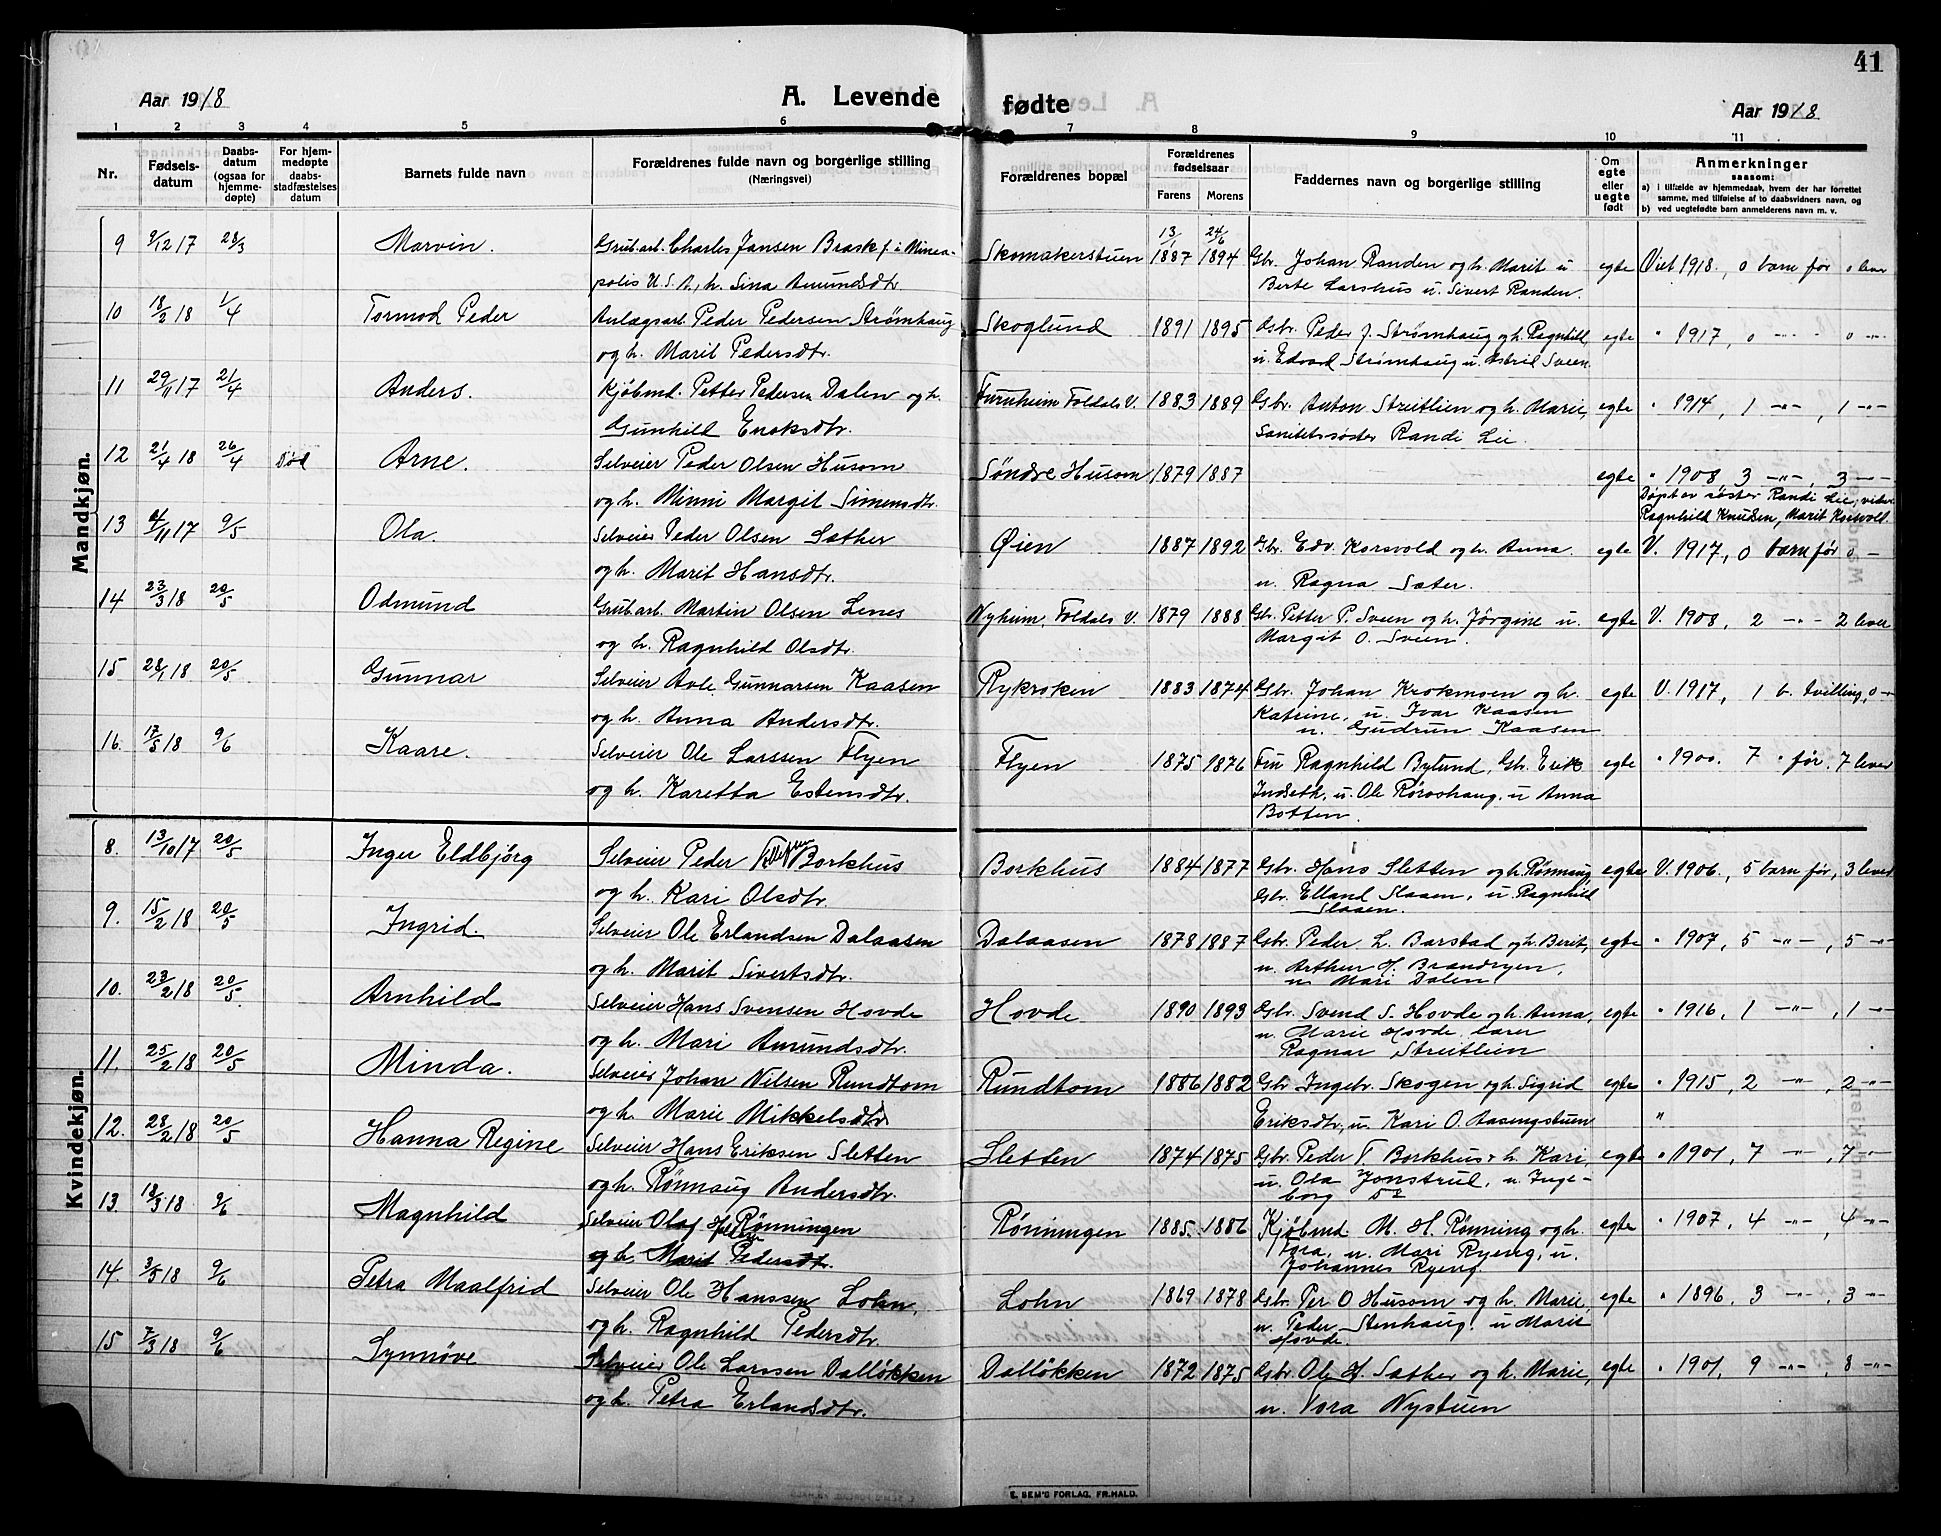 41
Aar 1918 A. Levende fødte Aar 1918
1 2 3 4 5 6 7 8 9 10 11
Nr. Fødselsdatum Daabsdatum (ogsaa for hjemmedøpte) For hjemmedøpte daabsstadfæstelses datum Barnets fulde navn Forældrenes fulde navn og borgerlige stilling (Næringsvei) Forældrenes bopæl Forældrenes fødselsaar Farens Morens Faddernes navn og borgerlige stilling Om egte eller uegte født Anmerkninger saasom: a) i tilfælde av hjemmedaab, hvem der har forrettet samme, med tilføielse av to daabsvidners navn, og b) ved uegtefødte barn anmelderens navn m. v.
Mandkjøn.
13/1 24/6
9 9/12 17 23/3 Marvin. Grubarb. Charles Jansen Brask f. i Minea- Skomakerstuen 1887 1894 Gbr. Johan Randen og h. Marit u egte Viet 1918, 0 barn før 0 lever
polis U.S.A., h. Sina Amundsdtr. Berte Larshus u. Sivert Randen.
10 18/2 18 1/4 Tormod Peder Anlægsarb. Peder Pedersen Strømhaug Skoglund 1891 1895 Gbr. Peder J. Strømhaug og h. Ragnhild, egte " 1917, 0 -"- 0 -"-
og h. Marit Pedersdtr. u. Edvard Strømhaug u. Astrid Sveen.
11 29/11 17 21/4 Anders. Kjøbmd. Petter Pedersen Dalen og h. Furuheim Foldals V. 1883 1889 Gbr. Anton Streitlien og h. Marie, egte " 1914, 1 -"-, 1 -"-
Gunhild Enoksdtr. Sanitetssøster Randi Lie.
12 21/4 18 26/4 Død Arne. Selveier Peder Olsen Husom Søndre Husom 1879 1887 egte " 1908 3 -"-, 3 -"-
og h. Minni Margit Simensdtr. Døpt av søster Randi Lie, vidner
Ragnhild Knudsen, Marit Korsvold
13 4/11 17 9/5 Ola. Selveier Peder Olsen Sæther Øien 1887 1892 Gbr. Edv. Korsvold og h. Anna egte V. 1917, 0 barn før 0 -
og h. Marit Hansdtr. u. Ragna Sæter.
14 23/3 18 20/5 Odmund Grubarb. Martin Olsen Lenes Nyheim, Foldals V. 1879 1888 Gbr. Petter P. Sveen og h. Jørgine u. egte V. 1908, 2 -"- 2 lever
og h. Ragnhild Olsdtr. Margit O. Sveen.
15 28/1 18 20/5 Gunnar Selveier Avle Gunnarsen Kaasen Rykroken 1883 1874 Gbr. Johan Krokmoen og h. egte V. 1917, 1 b. tvilling, 0 -
og h. Anna Andersdtr. Katrine, u. Ivar Kaasen
u. Gudrun Kaasen
16. 17/5 18 9/6 Kaare. Selveier Ole Larssen Flyen Flyen 1875 1876 Fru Ragnhild Bylund, Gbr. Erik egte " 1900. 7 " før. 7 lever
og h. Karetta Estensdtr. Indseth, u. Ole Røroshaug, u Anna
Botten.
Kvindekjøn.
8. 13/10 17 20/5 Inger Eldbjørg Selveier Peder Tollefsen Borkhus Borkhus 1884 1877 Gbr. Hans Sletten og h. Rønnaug, egte V. 1906, 5 barn før, 3 lever
og h. Kari Olsdtr. Gbr. Elland Slaaen, u. Ragnhild
Slaaen.
9. 15/2 18 20/5 Ingrid. Selveier Ole Erlandsen Dalaasen Dalaasen 1878 1887 Gbr. Peder L. Barstad og h. Berit, egte " 1907, 5 -"-, 5 -"-
og h. Marit Sivertsdtr. u. Arthur H. Brændryen,
u. Mari Dalen
10. 23/2 18 20/5. Arnhild Selveier Hans Svensen Hovde Hovde 1890 1893 Gbr. Svend S. Hovde og h. Anna, egte " 1916, 1 -"-, 1 -"-
og h. Mari Amundsdtr. u. Marie Hovde, lærer
Ragnar Streitlien
11. 25/2 18 20/5 Minda. Selveier Johan Nilsen Rundtom Rundtom 1886 1882 Gbr Ingebr. Skogen og h. Sigrid egte " 1915, 2 -"-, 2 -"-
og h. Marie Mikkelsdtr Eriksdtr, u. Kari O. Aasengstuen "
12. 28/2 18 20/5 Hanna Regine Selveier Hans Eriksen Sletten Sletten 1874 1875 Gbr. Peder T Borkhus + h. Kari, egte " 1901, 7 -"-, 7 -"-
og h. Rønnaug Andersdtr. u. Ola Jonstrud, u. Inge-
borg sd
13. 18/3 18 9/6 Magnhild Selveier Olaf Rønningen Rønningen 1885. 1886 Kjøbmd. M. H. Rønning og h. egte " 1907, 4 -"-, 4 -"-
og h. Marit Pedersdtr. Tora, u. Mari Ryeng, u.
Johannes Ryeng
14. 3/5 18 9/6 Petra Maalfrid Selveier Ole Hanssen Lohn, Lohn 1869 1878 Gbr. Per O Husom og h. Marie, egte " 1896, 3 -"-, 3 -"-
og h. Ragnhild Pedersdtr. u. Peder Stenhaug, u Marit
Hovde.
15 7/3 18 9/6 Synnøve Selveier Ole Larssen Dalløkken Dalløkken 1872 1875 Gbr. Ole H. Sæther og h. Marie, egte " 1901, 9 -"-, 8 -"-
og h. Petra Erlandsdtr. u. Tora Nystuen
E. SEM'S FORLAG, FR.HALD.